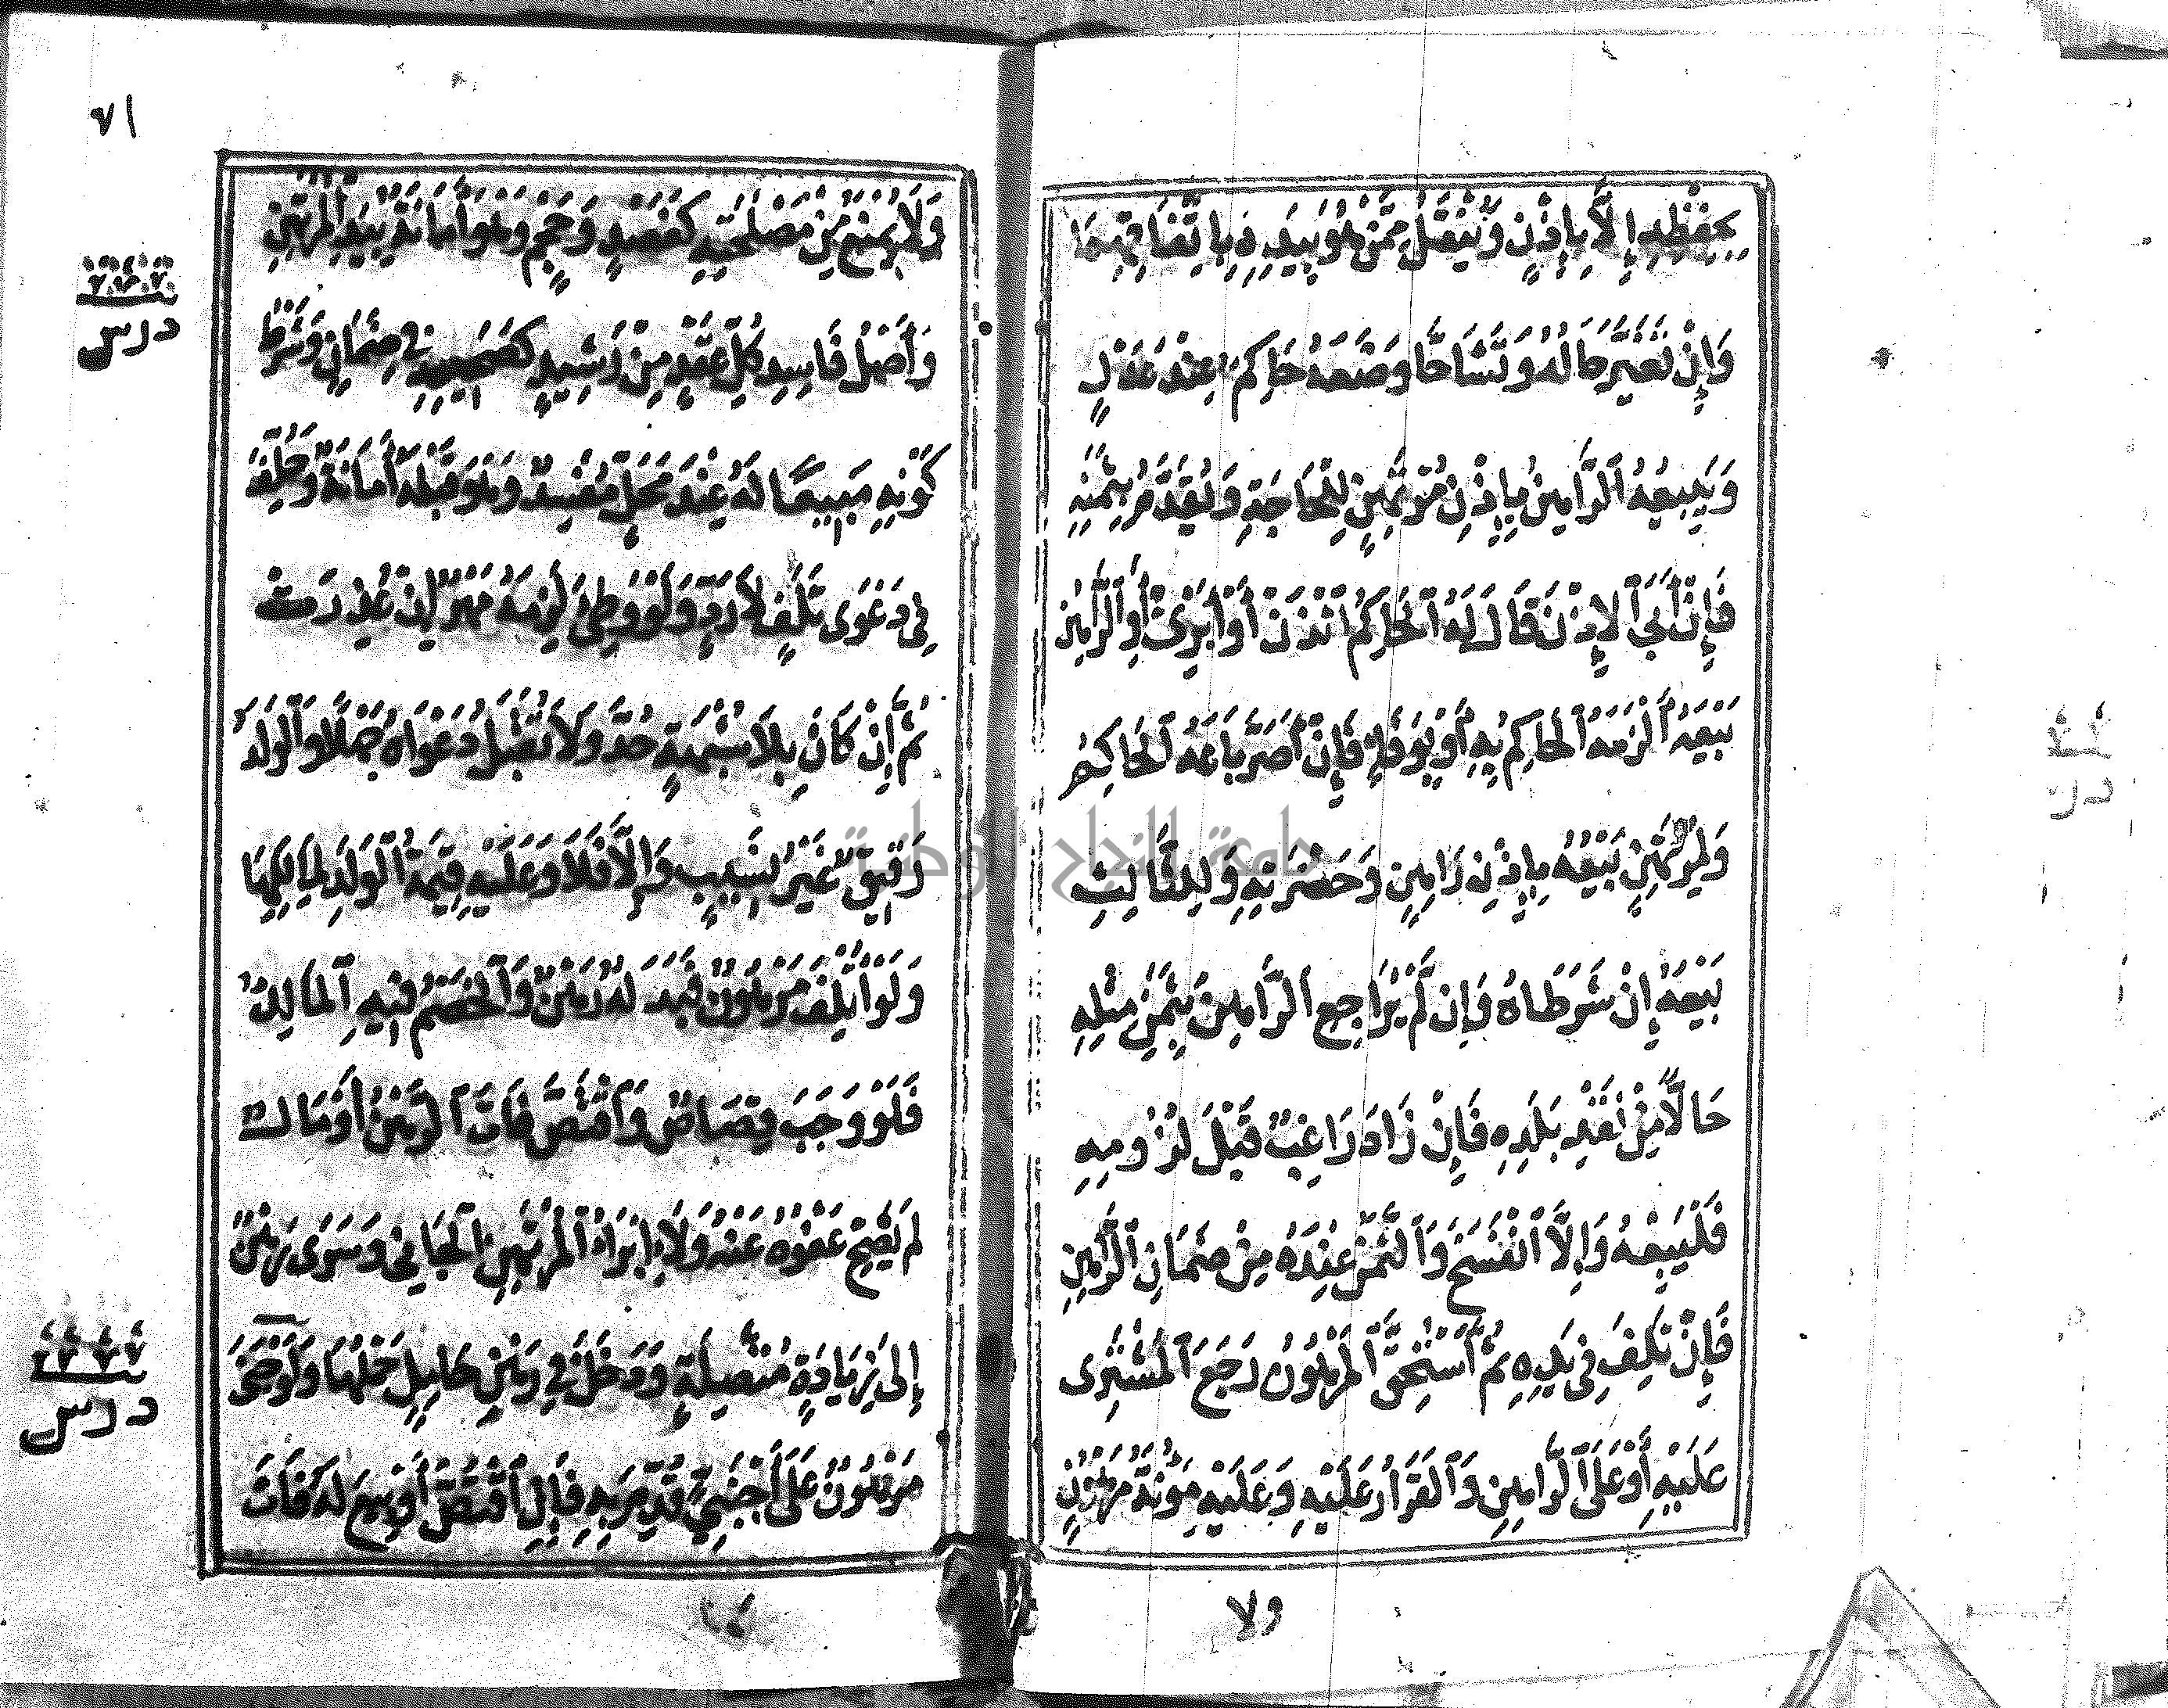 بِحِفْظِهِ إِلَّا بِإِذْنٍ وَيُنْقَلُ مِمَّنْ هُوَ بِيَدِهِ بِاتِّفَاقِهِمَا
وَإِنْ تَغَيَّرَ حَالُهُ وَتَشَاحَّا وَضَعَهُ حَاكِمٌ عِنْدَ عَدْلٍ
وَيَبِيعُهُ ٱلرَّاهِنُ بِإِذْنِ مُرْتَهِنٍ لِلْحَاجَةِ وَيُقَدَّمُ بِثَمَنِهِ
فَإِنْ أَبَى ٱلْإِذْنَ قَالَ لَهُ ٱلْحَاكِمُ ٱئْذَنْ أَوْ أَبْرِئْ أَوِ ٱلرَّاهِنُ
بَيْعَهُ أَلْزَمَهُ ٱلْحَاكِمُ بِهِ أَوْ بِوَفَاءٍ فَإِنْ أَصَرَّ بَاعَهُ ٱلْحَاكِمُ
وَلِمُرْتَهِنٍ بَيْعُهُ بِإِذْنِ رَاهِنٍ وَحَضْرَتِهِ وَلِلثَّالِثِ
بَيْعُهُ إِنْ شَرَطَاهُ وَإِنْ لَمْ يُرَاجِعِ ٱلرَّاهِنَ بِثَمَنِ مِثْلِهِ
حَالًّا مِنْ نَقْدِ بَلَدِهِ فَإِنْ زَادَ رَاغِبٌ قَبْلَ لُزُومِهِ
فَلْيَبِعْهُ وَإِلَّا ٱنْفَسَخَ وَٱلثَّمَنُ عِنْدَهُ مِنْ ضَمَانِ ٱلرَّاهِنِ
فَإِنْ تَلِفَ فِي يَدِهِ ثُمَّ ٱسْتُحِقَّ ٱلْمَرْهُونُ رَجَعَ ٱلْمُشْتَرِى
عَلَيْهِ أَوْ عَلَى ٱلرَّاهِنِ وَٱلْقَرَارُ عَلَيْهِ وَعَلَيْهِ مَؤُنَةُ مَرْهُونٍ
ولا
٧١
وَلَا يُمْنَعُ مِنْ مَصْلَحَتِهِ كَفَصْدٍ وَحَجْمٍ وَهُوَ أَمَانَةٌ بِيَدِ ٱلْمُرْتَهِنِ
وَأَصْلُ فَاسِدِ كُلِّ عَقْدٍ مِنْ رَشِيدٍ كَصَحِيحِهِ فِي ضِمَانٍ وَشَرْطُ
كَوْنِهِ مَبِيعًا لَهُ عِنْدَ مَحَلٍّ مُفْسِدٌ وَهُوَ قَبْلَهُ أَمَانَةٌ وَحَلَفَ
فِي دَعْوَى تَلَفٍ لَا رَدٍّ وَلَوْ وَطِئَ لَزِمَهُ مَهْرٌ إِنْ عُذِرَتْ
ثُمَّ إِنْ كَانَ بِلَا شُبْهَةٍ حُدَّ وَلَا تُقْبَلُ دَعْوَاهُ جَهْلًا وَٱلْوَلَدُ
رَقِيقٌ غَيْرُ نَسِيبٍ وَإِلَّا فَلَا وَعَلَيْهِ قِيمَةُ ٱلْوَلَدِ لِمَالِكِهَا
وَلَوْ أُتْلِفَ مَرْهُونٌ فَبَدَلُهُ رَهْنٌ وَٱلْخَصْمُ فِيهِ ٱلْمَالِكُ
فَلَوْ وَجَبَ قِصَاصٌ وَٱقْتَصَّ فَاتَ ٱلرَّهْنُ أَوْ مَالٌ
لَمْ يَصِحَّ عَفْوُهُ عَنْهُ وَلَا إِبْرَاءُ ٱلْمُرْتَهِنِ ٱلْجَانِي وَسَرَى رَهْنٌ
إِلَى زِيَادَةٍ مُتَّصِلَةٍ وَدَخَلَ فِي رَهْنِ حَامِلٍ حَمْلُهَا وَلَوْ جَنَى
مَرْهُونٌ عَلَى أَجْنَبِيٍّ قُدِّمَ بِهِ فَإِنِ ٱقْتُصَّ أَوْ بِيعَ لَهُ فَاتَ
درس
درس
جامعة النجاح الوطنية